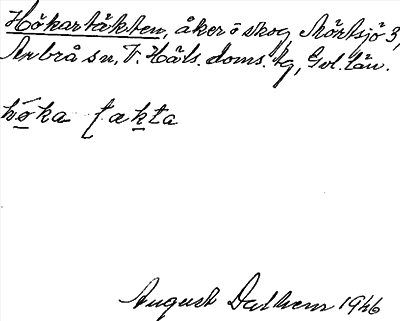 Hökartäkten, åker o skog Mörtsjö 3,
Arbrå sn, V. Häls. doms. hg, Gvl. län.
hö̱ka ta̱kta
August Dalhem 1946